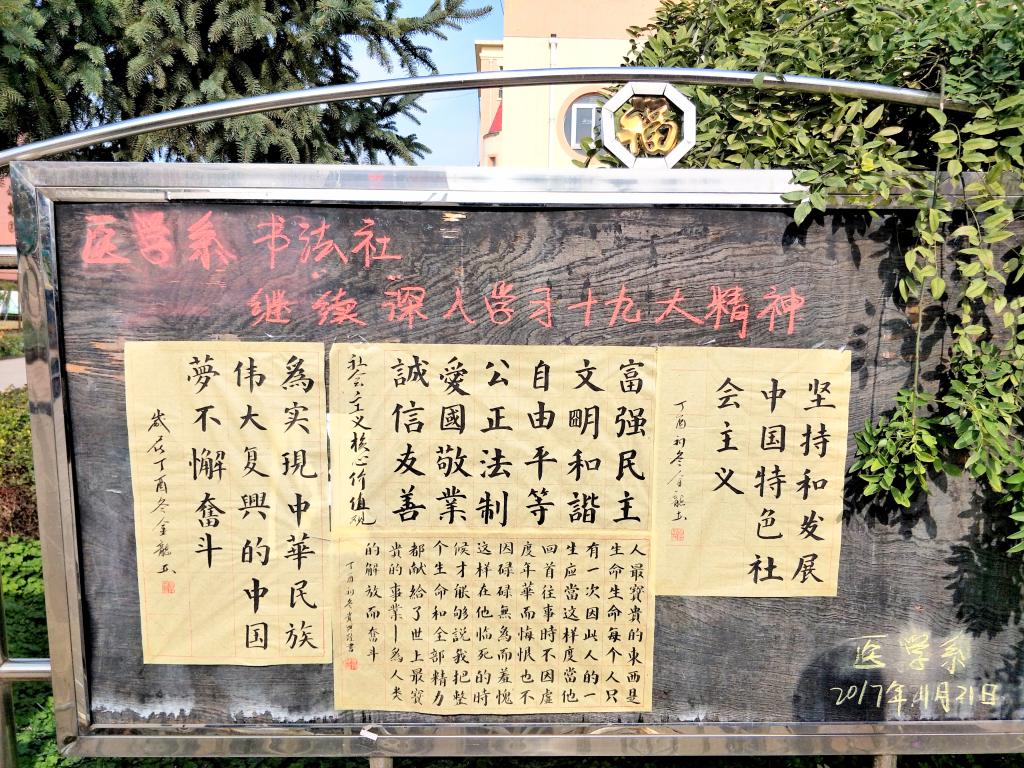 福
医学系 书法社
继续深入学习十九大精神
坚持和发展
中国特色社
会主义
丁酉初冬金龍书
富强民主
文明和諧
自由平等
公正法制
愛國敬業
誠信友善
社会主义核心价值观
人最寶貴的東西是
生命生命每个人只
有一次因此人的一
生应當这样度當他
回首往事時不因虚
度年華而悔恨也不
因碌碌無為而羞愧
这样在他临死的時
候才能够説我把整
个生命和全部精力
都献給了世上最寶
貴的事業—為人类
的解放而奮斗
丁酉初冬
為实現中華民族
伟大复興的中国
夢不懈奮斗
歲在丁酉冬金龍书
医学系
2017年11月21日